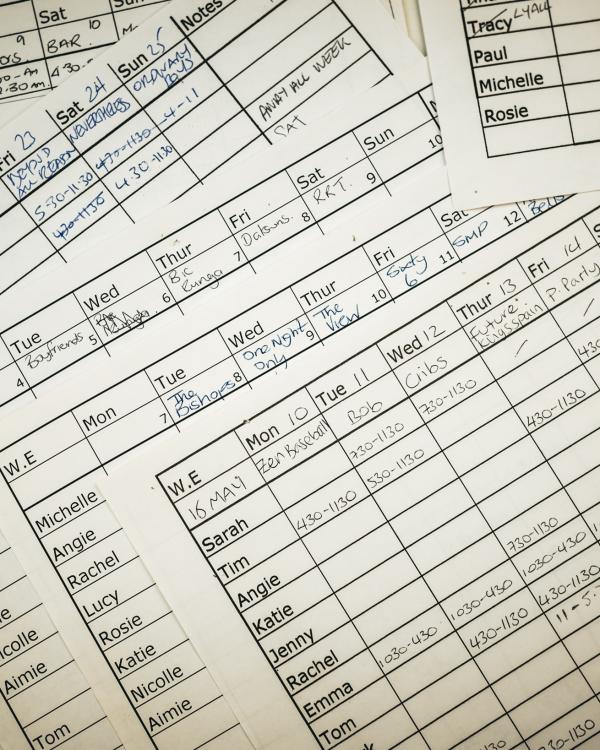 Sat
Sun
9
BAR. 10
4.30-
Fri 23
Sat 24
Sun 25
Notes
NEVERHEROS
ORDINARY
BOYS
5-30-11:30
4-11
4.30-11:30
AWAY ALL WEEK
SAT
Tracy LYALL
Paul
Michelle
Rosie
Tue
Wed
Thur
Fri
Sat
Sun
4
Boyfriends
5
6
Bic
Runga
7
Datsuns.
8
RRT.
9
10
Mon
Tue
Wed
Thur
Fri
Sat
7
The
Bishops
8
One Night
Only
9
The
View
10
Sixty
6
11
SMP
12
W.E
Michelle
Angie
Rachel
Lucy
Rosie
Katie
Nicolle
Aimie
icolle
Aimie
Tom
W.E
Mon 10
Tue 11
Wed 12
Thur 13
Fri 14
S
16 MAY
Zen Baseball
Bob
Cribs
Future
P. Party
Sarah
730-1130
730-1130
Tim
430-1130
530-1130
430-1130
Angie
Katie
Jenny
730-1130
Rachel
1030-430
1030-430
1030-430
Emma
430-1130
430-1130
Tom
11-5.